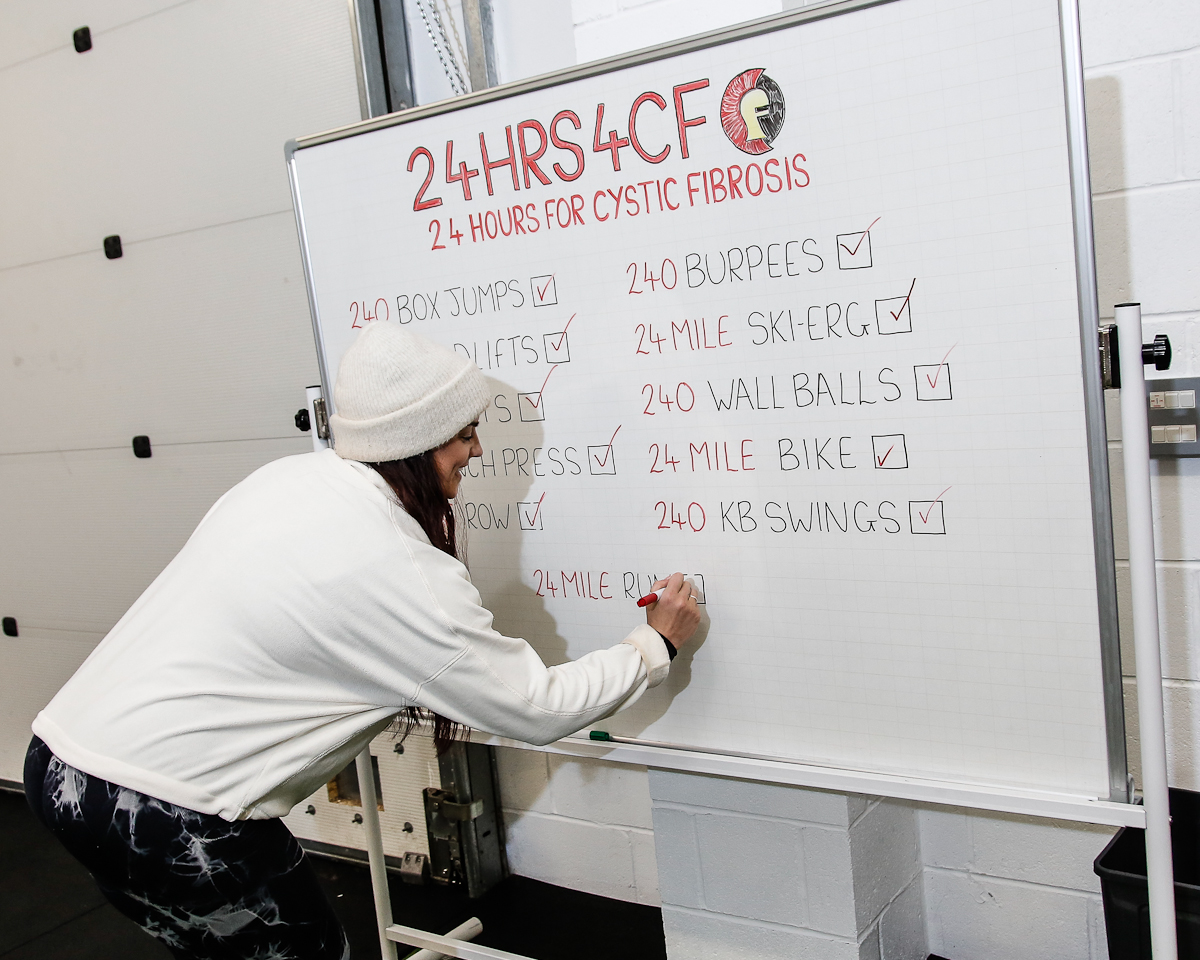 24HRS4CF
24 HOURS FOR CYSTIC FIBROSIS
240 BOX JUMPS
PRESS
ROW
240 BURPEES
24 MILE SKI-ERG
240 WALL BALLS
24 MILE BIKE
240 KB SWINGS
24 MILE